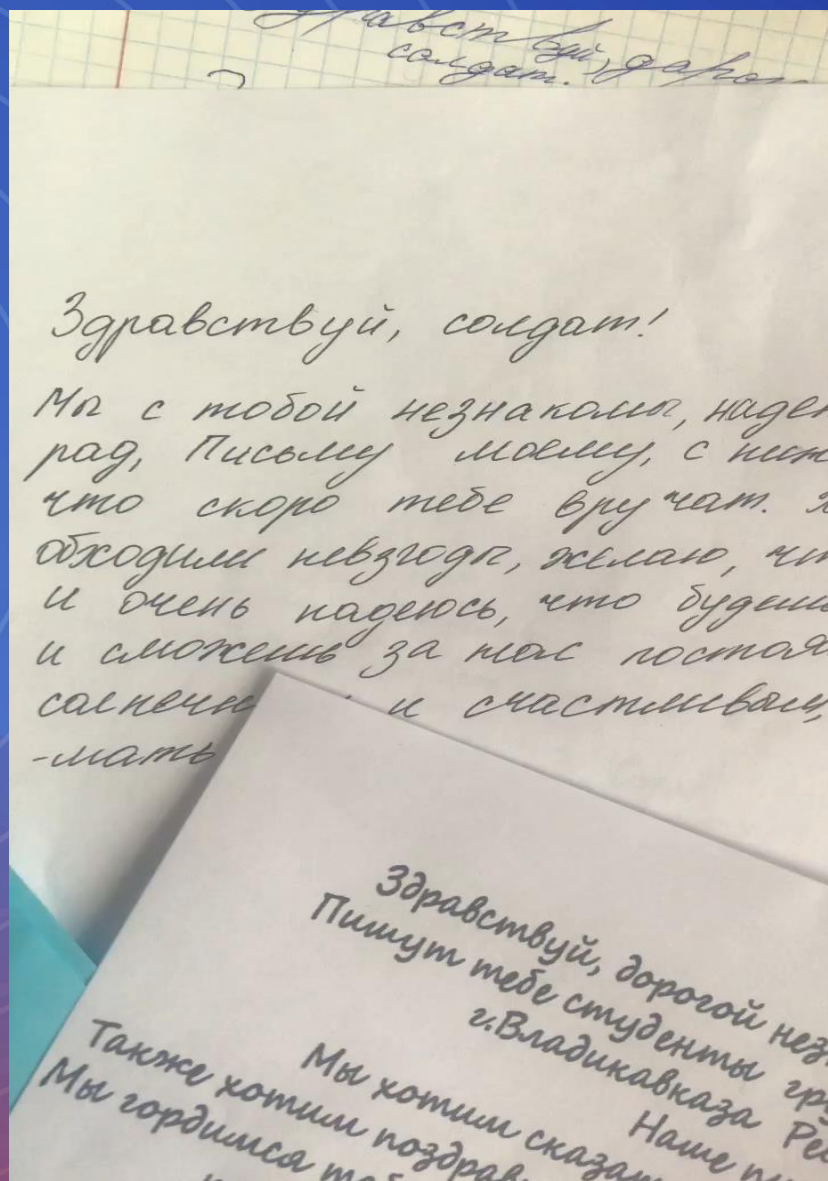 Здравствуй,
солдат.
Здравствуй, солдат!
Мы с тобой незнакомы, наде
рад, Письму моему, с ни
что скоро тебе вручат.
обходили невзгоды, желаю, чт
и очень надеюсь, что будешь
и сможешь за нас постоя
солнечн и счастливым,
-мать
Здравствуй, дорогой нез
Пишут тебе студенты гру
г.Владикавказа Ре
Наше пи
Мы хотим сказат
Также хотим поздрав
Мы гордимся тоб